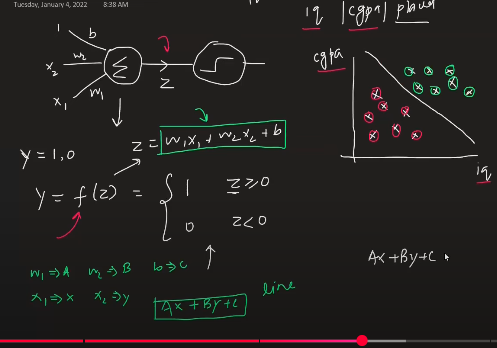 Tuesday, January 4, 2022 8:38 AM
iq | cgpa | placed
1
b
x₂ w₂ Σ z
x₁ w₁
cgpa
iq
z = w₁x₁ + w₂x₂ + b
y = 1, 0
y = f(z) = { 1 z ≥ 0
0 z < 0
w₁ ⇒ A w₂ ⇒ B b ⇒ C
x₁ ⇒ x x₂ ⇒ y Ax + By + C line
Ax + By + C